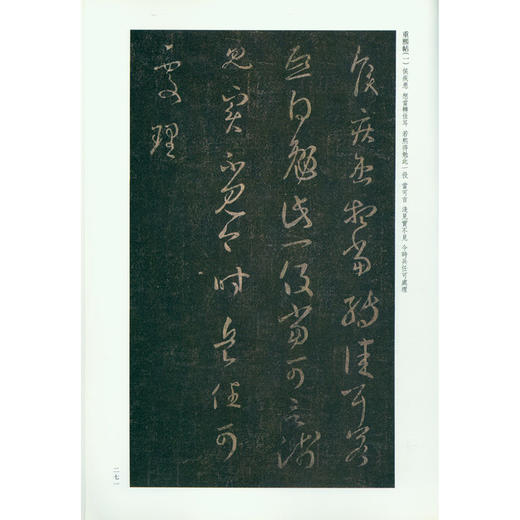 重熙帖(一) 侯疾患 想當轉佳耳 若熙得勉此一役 當可言 淺見實不見 今時兵任可處理
侯疾患想當轉佳耳若
熙得勉此一役當可言淺
見實不見今時兵任可
處理
二七一